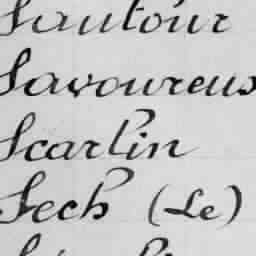 Sautour
Savoureux
Scarlin
Sech (Le)